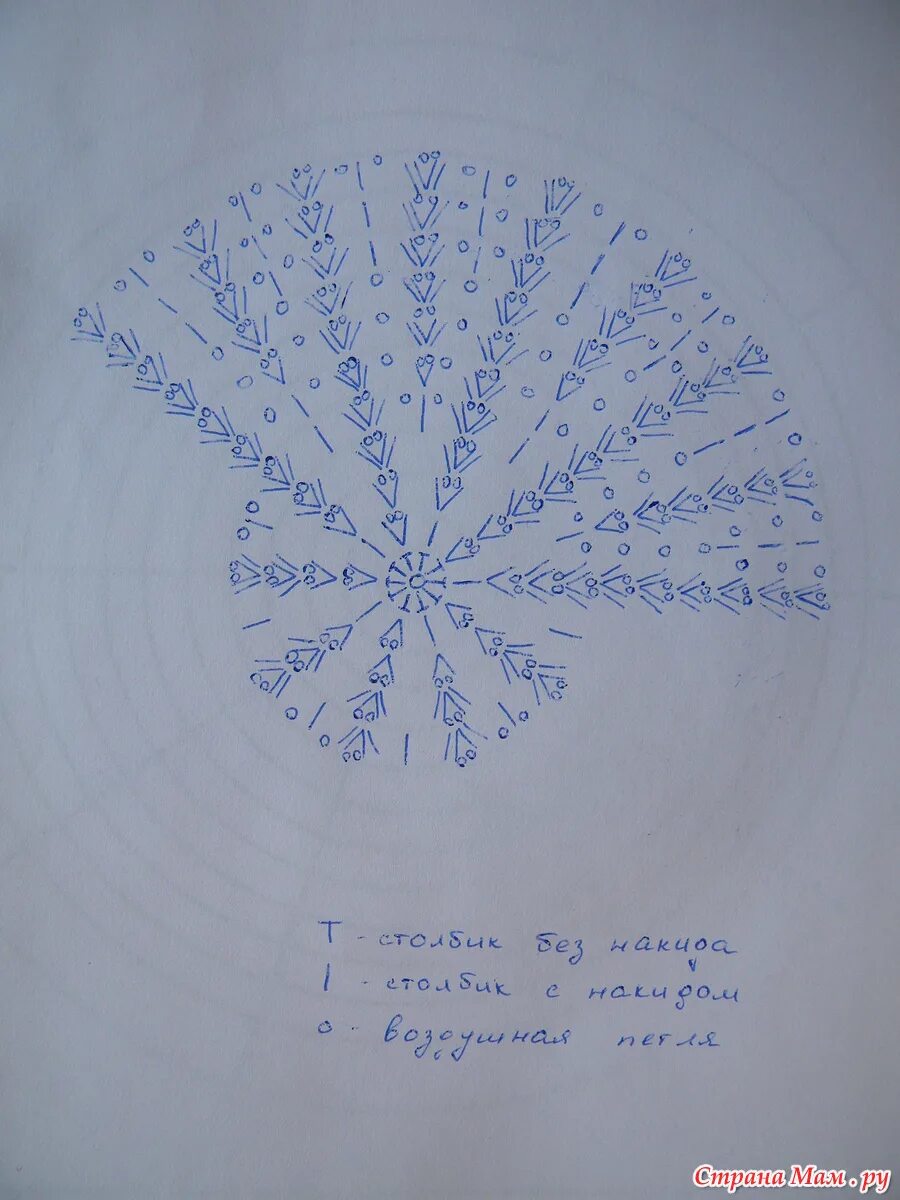 Т - столбик без накида
| - столбик с накидом
о - воздушная петля
Страна Мам.ру